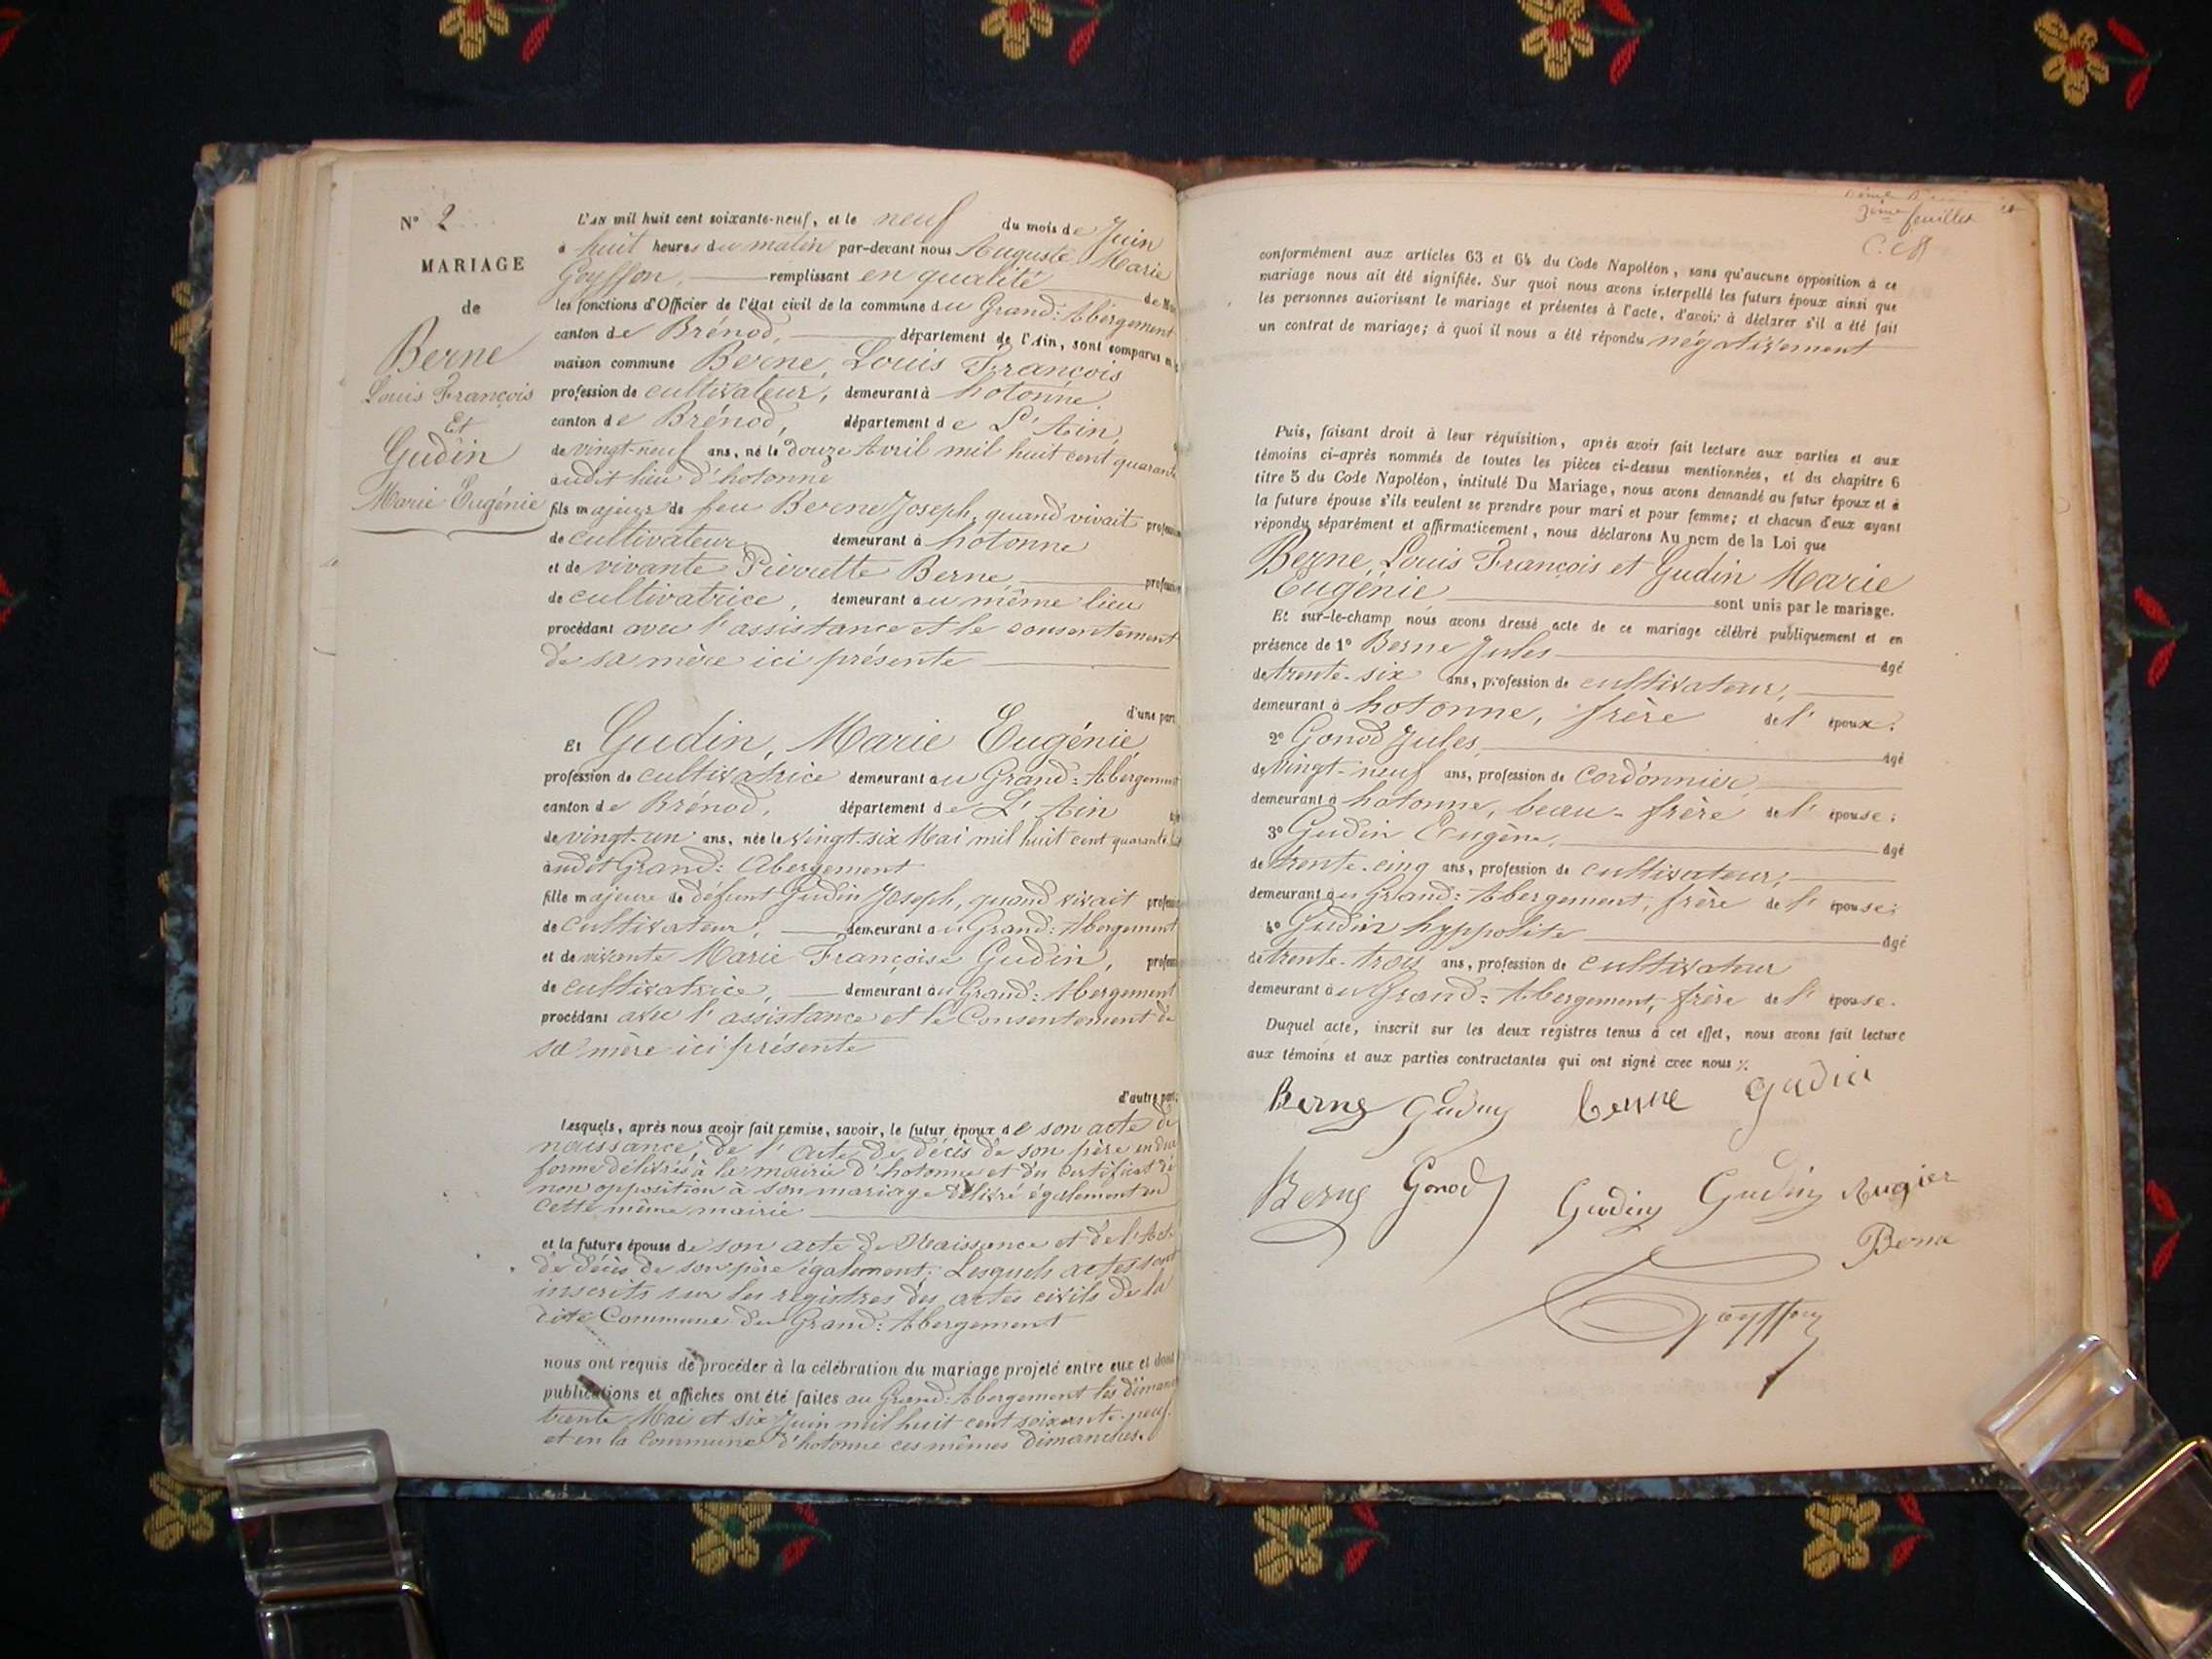 N° 2
MARIAGE
de
Berne
Louis François
Et
Gudin
Marie Eugénie
L'AN mil huit cent soixante-neuf, et le neuf du mois de Juin
à huit heures du matin par-devant nous Auguste Marie
Goyffon, remplissant en qualité de
les fonctions d'Officier de l'état civil de la commune du Grand-Abergement
canton de Brénod, département de l'Ain, sont comparus en
maison commune Berne, Louis François
profession de cultivateur, demeurant à hotonne
canton de Brénod, département de L'Ain,
de vingt-neuf ans, né le douze Avril mil huit cent quarante
audit lieu d'hotonne
fils majeur de feu Berne Joseph, quand vivait
de cultivateur demeurant à hotonne
et de vivante Pierrette Berne,
de cultivatrice, demeurant au même lieu
procédant avec l'assistance et le consentement
de sa mère ici présente
d'une part
Et Gudin, Marie Eugénie,
profession de cultivatrice demeurant au Grand-Abergement
canton de Brénod, département de L'Ain
de vingt-un ans, née le vingt-six Mai mil huit cent quarante
audit Grand-Abergement
fille majeure de défunt Gudin Joseph, quand vivait
de cultivateur, demeurant au Grand-Abergement
et de vivante Marie Françoise Gudin,
de cultivatrice, demeurant au Grand-Abergement
procédant avec l'assistance et le Consentement de
sa mère ici présente
d'autre part,
Lesquels, après nous avoir fait remise, savoir, le futur époux de son acte de
naissance, de l'acte de décès de son père en due
forme délivrés à la mairie d'hotonne et du Certificat de
non opposition à son mariage délivré également en
cette même mairie
et la future épouse de son acte de Naissance et de l'Acte
de décès de son père également; Lesquels actes sont
inscrits sur les registres des actes civils de la
dite Commune du Grand-Abergement
nous ont requis de procéder à la célébration du mariage projeté entre eux et dont
publications et affiches ont été faites au Grand-Abergement les
trente Mai et six Juin mil huit cent soixante-neuf
et en la Commune d'hotonne ces mêmes dimanches.
feuillet
conformément aux articles 63 et 64 du Code Napoléon, sans qu'aucune opposition à ce
mariage nous ait été signifiée. Sur quoi nous avons interpellé les futurs époux ainsi que
les personnes autorisant le mariage et présentes à l'acte, d'avoir à déclarer s'il a été fait
un contrat de mariage; à quoi il nous a été répondu négativement
Puis, faisant droit à leur réquisition, après avoir fait lecture aux parties et aux
témoins ci-après nommés de toutes les pièces ci-dessus mentionnées, et du chapitre 6
titre 5 du Code Napoléon, intitulé Du Mariage, nous avons demandé au futur époux et à
la future épouse s'ils veulent se prendre pour mari et pour femme; et chacun d'eux ayant
répondu séparément et affirmativement, nous déclarons Au nom de la Loi que
Berne, Louis François et Gudin Marie
Eugénie sont unis par le mariage.
Et sur-le-champ nous avons dressé acte de ce mariage célébré publiquement et en
présence de 1° Berne Jules âgé
de trente-six ans, profession de cultivateur,
demeurant à hotonne, frère de l' époux.
2° Gonod Jules âgé
de vingt-neuf ans, profession de cordonnier
demeurant à hotonne, beau-frère de l' épouse;
3° Gudin Eugène, âgé
de trente-cinq ans, profession de cultivateur,
demeurant au Grand-Abergement, frère de l' épouse;
4° Gudin hyppolite âgé
de trente-trois ans, profession de cultivateur
demeurant au Grand-Abergement, frère de l' épouse.
Duquel acte, inscrit sur les deux registres tenus à cet effet, nous avons fait lecture
aux témoins et aux parties contractantes qui ont signé avec nous
Berne Gudin Berne Gudin
Berne Gonod Gudin Gudin Augier
Berne
Goyffon